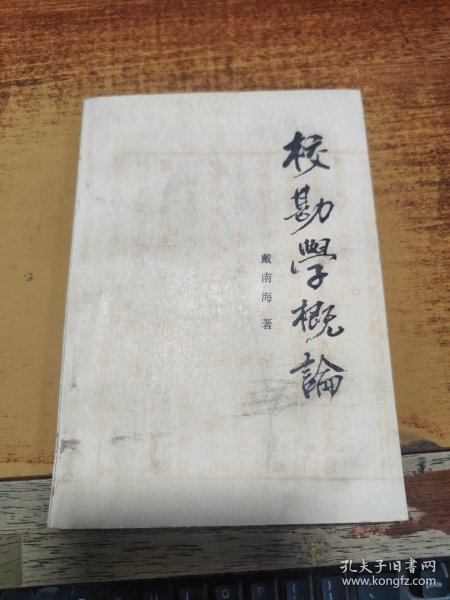 校勘學概論
戴南海 著
孔夫子旧书网
www.kongfz.com